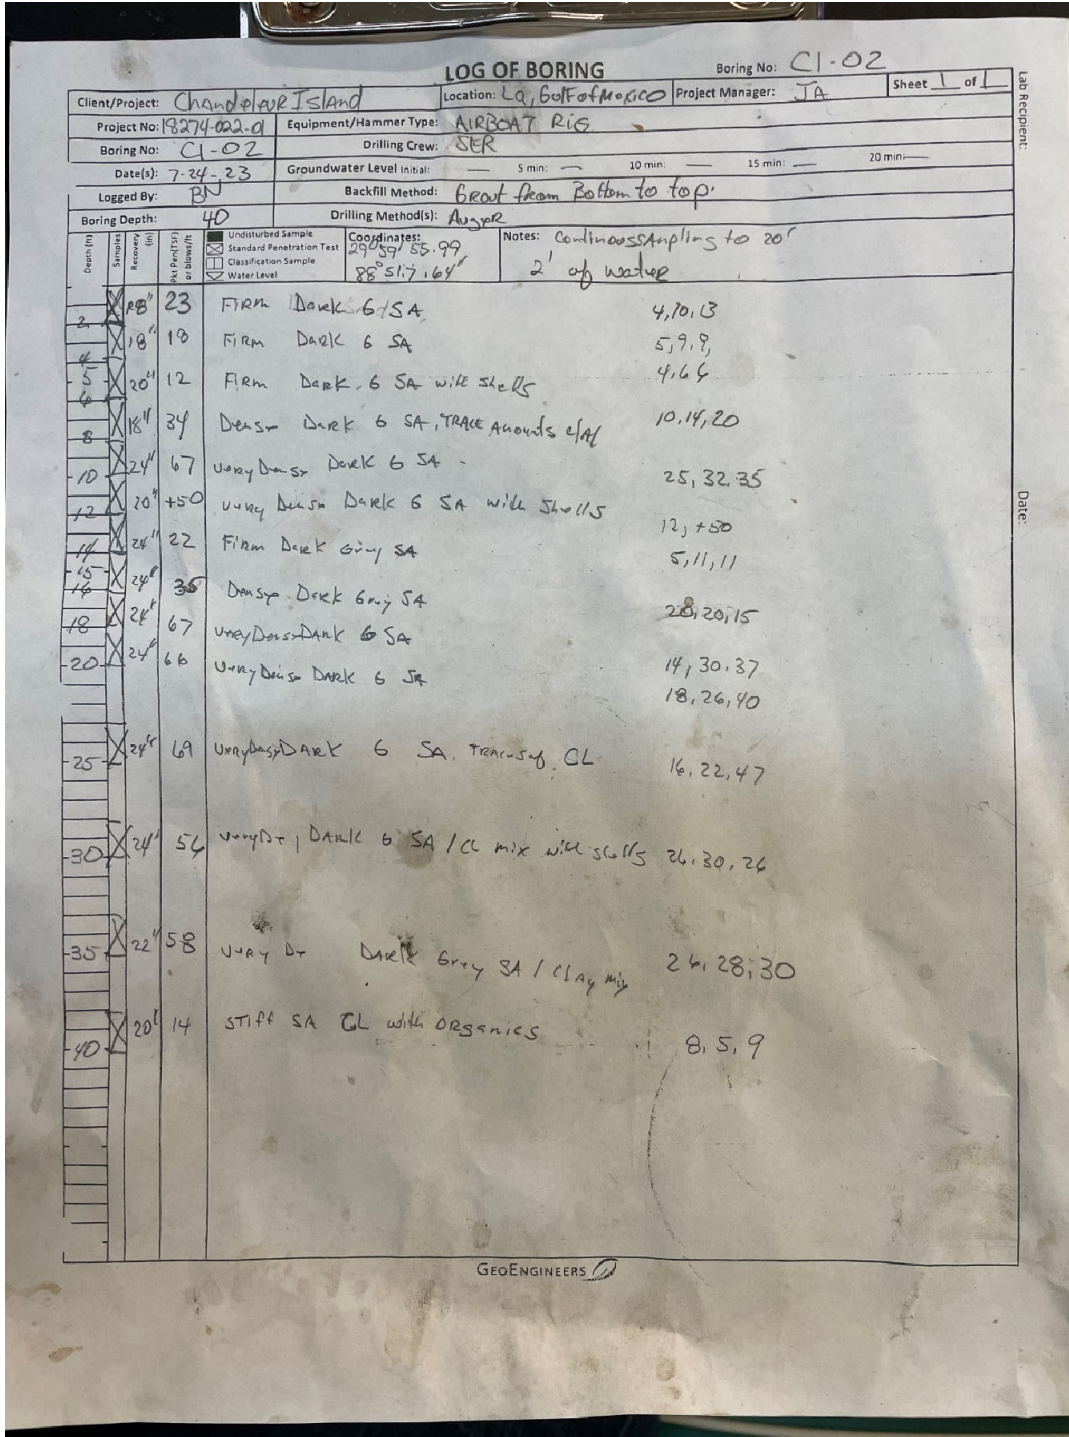 LOG OF BORING Boring No: CI-02
Client/Project: Chandeleur Island Location: La, Gulf of Mexico Project Manager: JA Sheet 1 of 1
Project No: 18274-022-01 Equipment/Hammer Type: AIRBOAT RIG
Boring No: CI-02 Drilling Crew: SER
Date(s): 7-24-23 Groundwater Level Initial: — 5 min: — 10 min: — 15 min: — 20 min: —
Logged By: BN Backfill Method: Grout from Bottom to top.
Boring Depth: 40 Drilling Method(s): Auger
Depth (ft) Samples Recovery (in) Pkt Pen(TSF) or blows/ft
Undisturbed Sample
Standard Penetration Test
Classification Sample
Water Level
Coordinates:
29°59' 55.99
88° 51.7.64"
Notes: Continous SAmpling to 20'
2' of water
2 18" 23 FIRM Dark G SA 4,10,13
4 18" 18 FIRM Dark G SA 5,9,9,
5
6 20" 12 FIRM Dark. G SA with shells 4,6 6
8 18" 34 Dense Dark G SA, TRACE Amounts 10,14,20
10 24" 67 very Dense Dark G SA - 25,32,35
12 20" +50 very Dense Dark G SA with Shells 12, +50
14 24" 22 Firm Dark Gray SA 5,11,11
15
16 24" 35 Dense Dark Gray SA 20,20,15
18 24" 67 very Dense DARK G SA 14,30,37
20 24" 66 very Dense DARK G SA 18,26,40
25 24" 69 very Dense DARK G SA, Traces of CL 16,22,47
30 24" 56 very D-, DARK G SA / CL mix with shells 26,30,26
35 22" 58 very D- DARK Gray SA / Clay mix 26,28,30
40 20" 14 STIFF SA CL with ORganics 8,5,9
GEOENGINEERS
Lab Recipient:
Date: